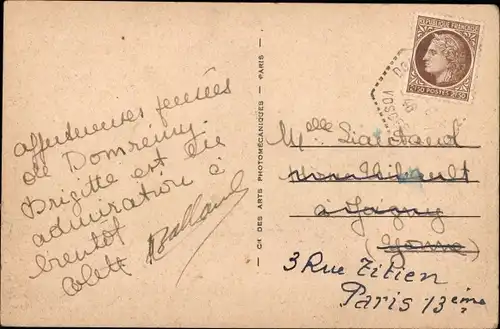 affectueuses pensées
de Domrémy.
Brigitte est en
admiration à
bientôt
Colett
Balland
Cie DES ARTS PHOTOMÉCANIQUES - PARIS
RÉPUBLIQUE FRANÇAISE
POSTES 2F50
VOSGES
Melle Liarsand
à Jagny
(Yonne)
3 Rue Titien
Paris 13ème